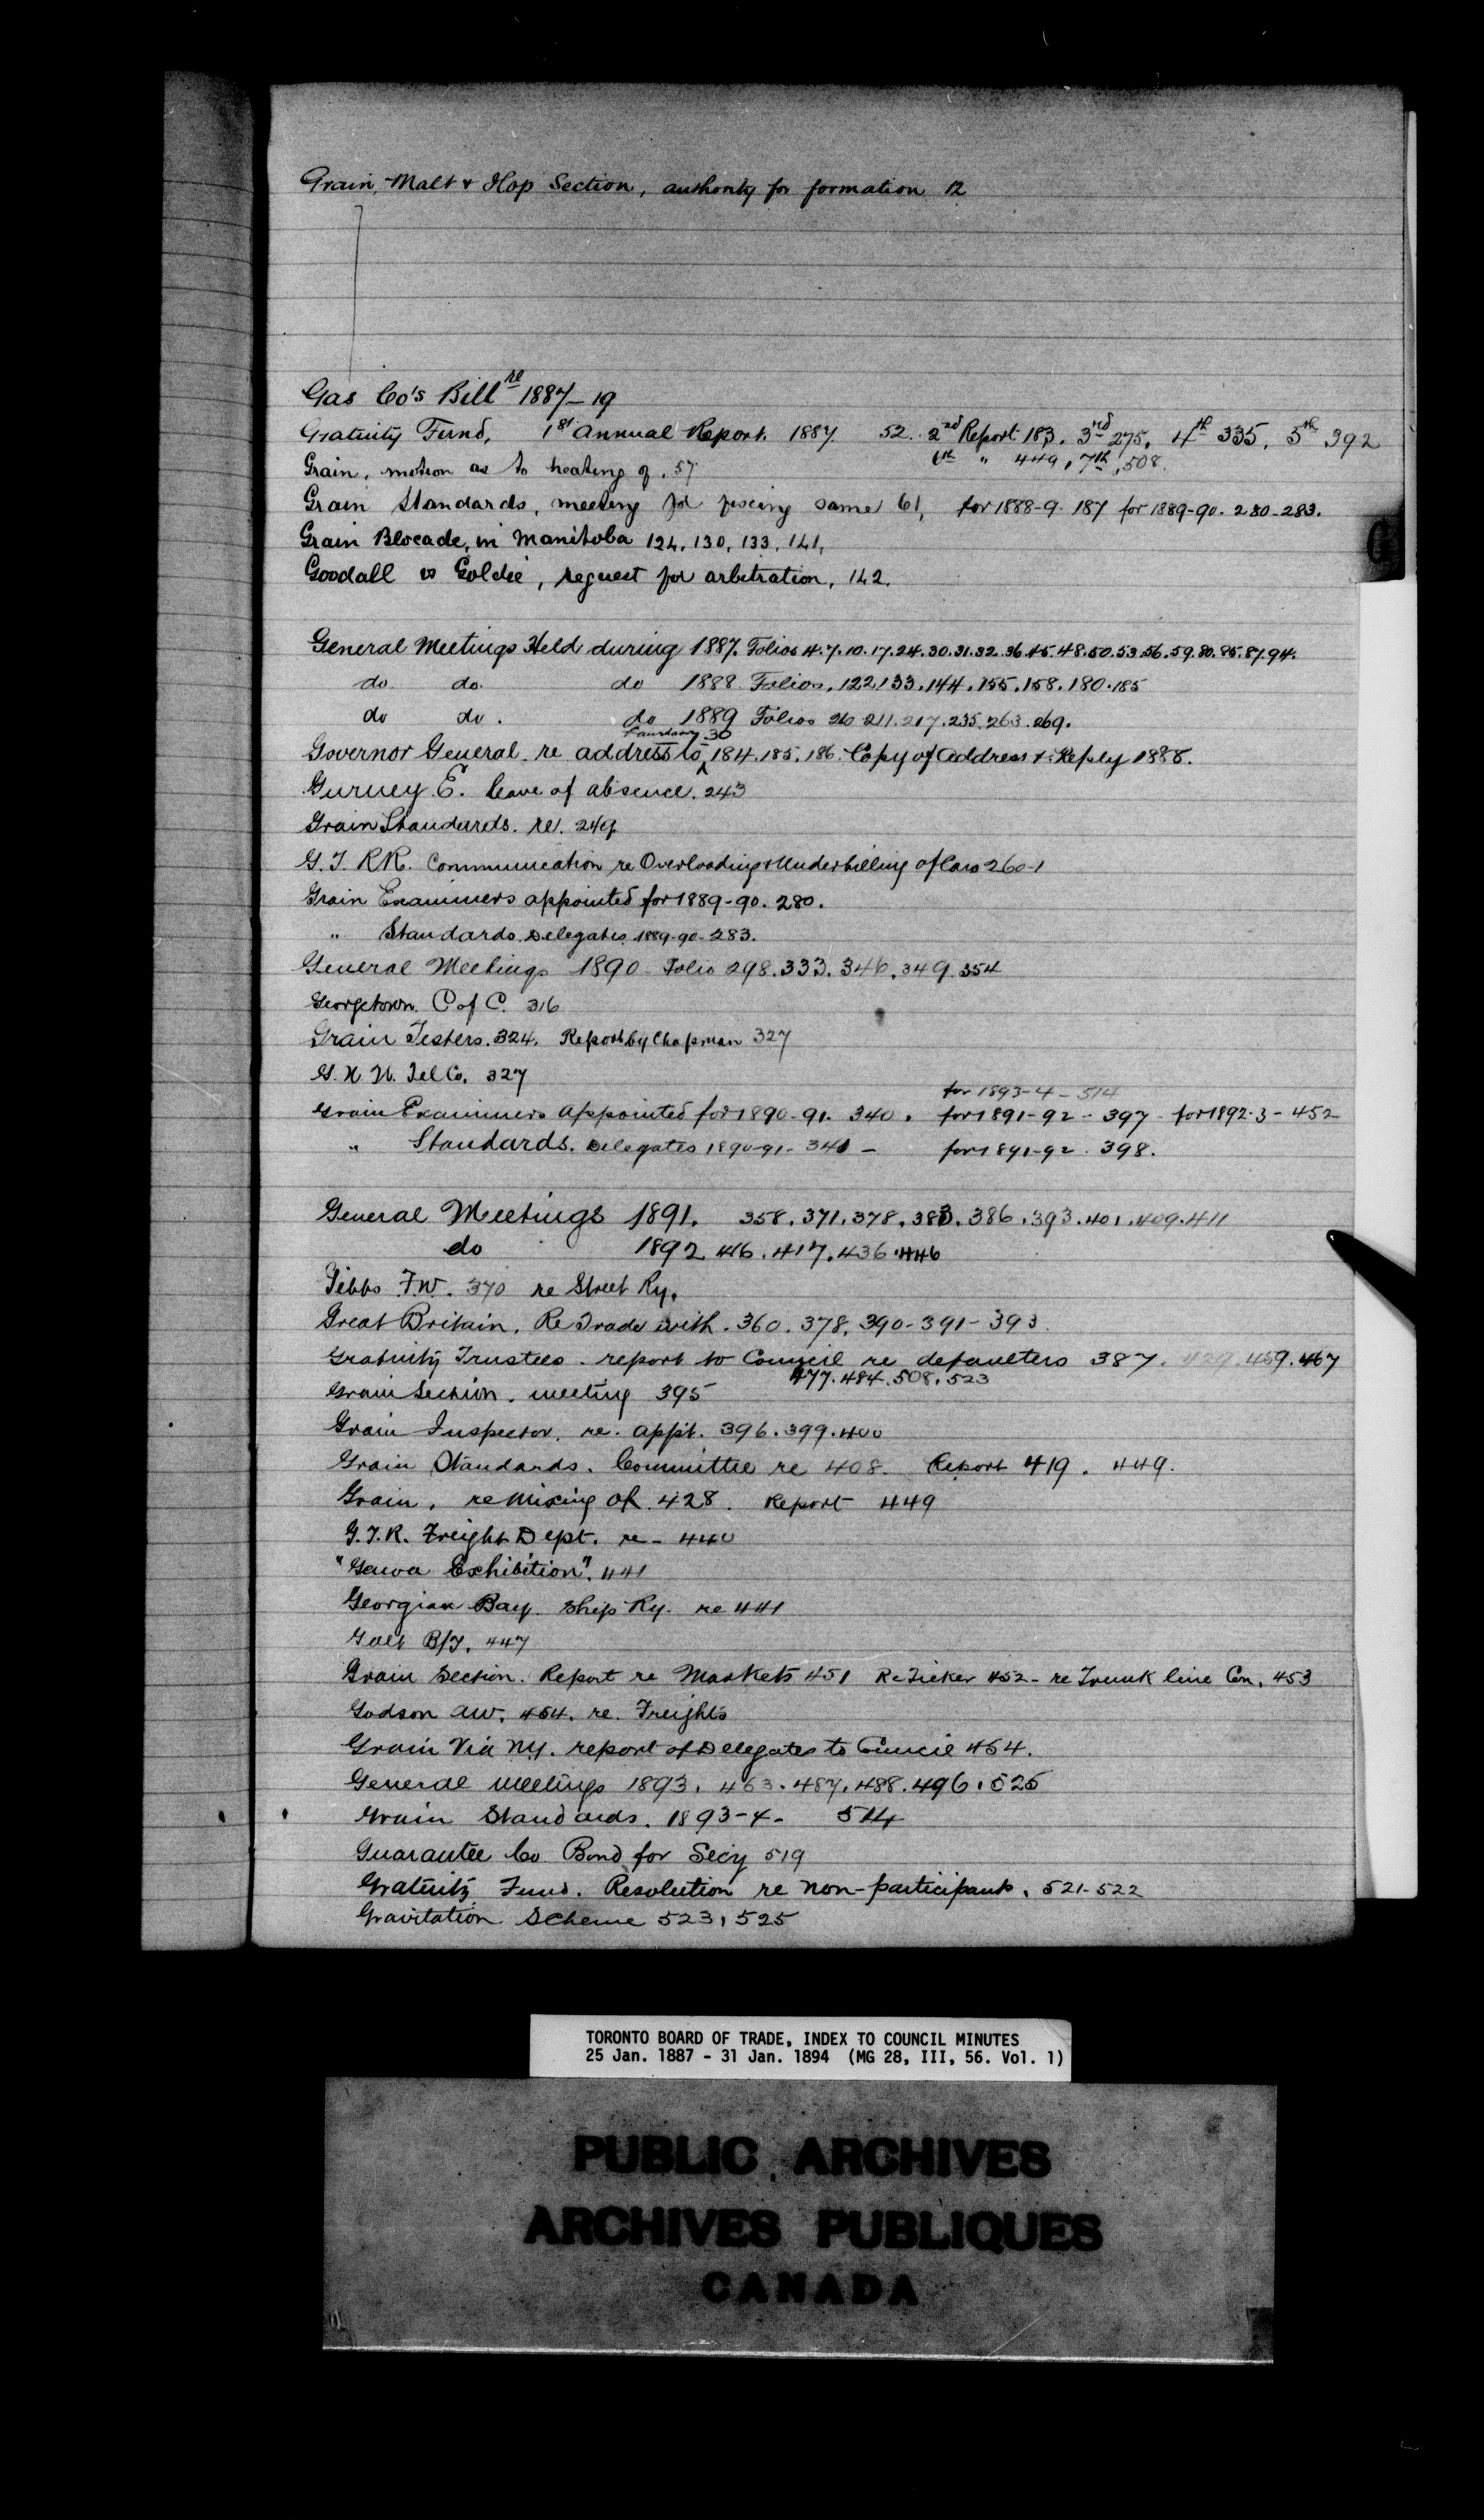 Grain, Malt & Hop Section, authority for formation 12
Gas Co's Bill re 1887-19
Gratuity Fund, 1st Annual Report. 1887 52. 2nd Report 183. 3rd 275. 4th 335. 5th 392
6th " 449, 7th, 508.
Grain, motion as to heating of, 57
Grain Standards, meeting for fixing same 61, for 1888-9. 187 for 1889-90. 280-283.
Grain Blocade, in Manitoba 124, 130, 133, 141,
Goodall vs Goldie, request for arbitration, 142.
General Meetings Held during 1887. Folios 4.7.10.17.24.30.31.32.36.45.48.50.53.56.59.80.85.87.94.
do do. do 1888 Folios. 122.133.144.155.158.180.185
do do. do 1889 Folios 210 211.217.235.263.269.
30
Governor General. re address to 184.185.186. Copy of Address & Reply 1888.
Gurney E. leave of absence. 243
Grain Standards. re. 249
G. T. RR. Communication re Overloading & Underbilling of Cars 260-1
Grain Examiners appointed for 1889-90. 280.
" Standards. Delegates 1889-90-283.
General Meetings 1890 Folio 298.333.346.349.354
Georgetown. C of C. 316
Grain Testers. 324. Report by Chapman 327
G. N. W. Tel Co. 327
for 1893-4-514
Grain Examiners appointed for 1890-91. 340. for 1891-92-397 for 1892-3-452
" Standards. Delegates 1890-91-341- for 1891-92. 398.
General Meetings 1891. 358.371.378.383.386.393.401.409.411
do 1892 416.417.436.446
Gibbs F.W. 370 re Street Ry.
Great Britain. Re Trade with. 360. 378. 390-391-393.
Gratuity Trustees. report to Council re defaulters 387. 429. 459. 467
477. 484. 508. 523
Grain Section. meeting 395
Grain Inspector. re. appt. 396.399.400
Grain Standards. Committee re 408. Report 419. 449.
Grain. re Mixing of. 428. Report 449
G.T.R. Freight Dept. re-440
"Genoa Exhibition". 441
Georgian Bay. Ship Ry. re 441
Galt B/T. 447
Grain Section. Report re Markets 451 Re Ticker 452-re Trunk line Con. 453
Godson AW. 454. re. Freights
Grain Via N.Y. report of Delegates to Council 454.
General Meetings 1893. 463.487.488.496.525
Grain Standards. 1893-4- 514
Guarantee Co Bond for Secy 519
Gratuity Fund. Resolution re non-participants. 521-522
Gravitation Scheme 523, 525
G
TORONTO BOARD OF TRADE, INDEX TO COUNCIL MINUTES
25 Jan. 1887 - 31 Jan. 1894 (MG 28, III, 56. Vol. 1)
PUBLIC ARCHIVES
ARCHIVES PUBLIQUES
CANADA